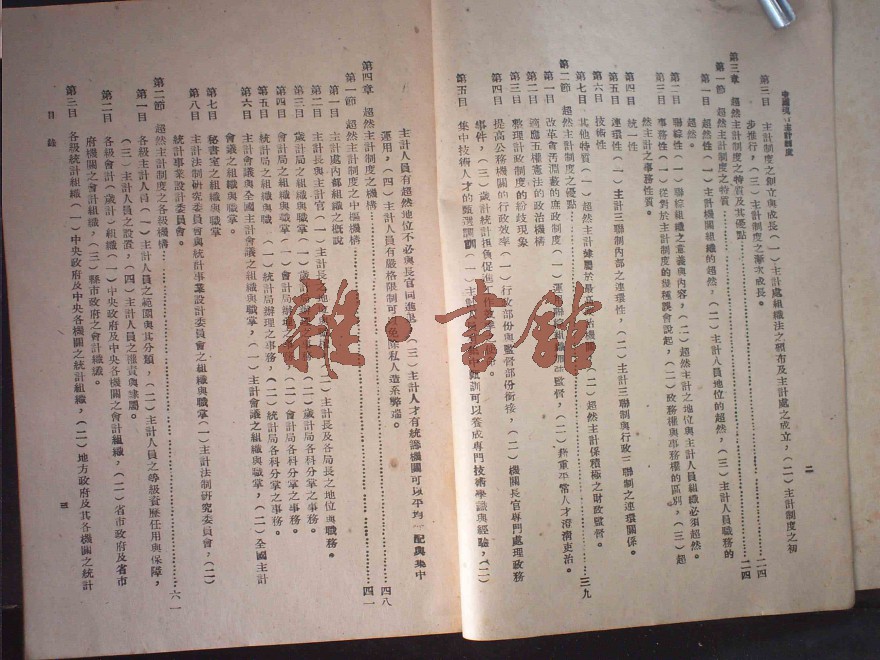 二
第三目 主計制度之創立與成長(一)主計處組織法之頒布及主計處之成立,(二)主計制度之初
步推行,(三)主計制度之漸次成長。……二四
第三章 超然主計制度之特質及其優點……二四
第一節 超然主計制度之特質
第一目 超然性(一)主計機關組織的超然,(二)主計人員地位的超然,(三)主計人員職務的
超然。
第二目 聯綜性(一)聯綜組織之意義與內容,(二)超然主計之地位與主計人員組織必須超然。
第三目 事務性(一)從對於主計制度的幾種誤會說起,(二)政務權與事務權的區別,(三)超
然主計之事務性質。
第四目 統一性
第五目 連環性(一)主計三聯制內部之連環性,(二)主計三聯制與行政三聯制之連環關係。
第六目 技術性
第七目 其他特質(一)超然主計隸屬於最高,(二)超然主計係積極之財政監督。
第二節 超然主計制度之優點……三九
第一目 改革會計制度,(二)
第二目 適應五權憲法的政治機構
第三目 整理計政制度的紛歧現象
第四目 提高公務機關的行政效率(一)行政部份與監督部份銜接,(二)機關長官專門處理政務
事件,(三)歲計統計
第五目 集中技術人才的甄理調訓(一)可以養成專門技術學識與經驗,(二)
主計人員有超然地位不必與長官同進退,(三)主計人才有統籌機關可以平均分配與集中
運用,(四)主計人員有嚴格限制可以免除私人造系弊端。
第四章 超然主計制度之機構……四八
第一節 超然主計制度之中樞機構……四一
第一目 主計處內部組織之概說
第二目 主計長與主計官(一)主計長之地位,(二)主計長及各局長之地位與職務。
第三目 歲計局之組織與職掌(一)歲計局,(二)歲計局各科分掌之事務。
第四目 會計局之組織與職掌,(一)會計局辦理之事務,(二)會計局各科分掌之事務。
第五目 統計局之組織與職掌,(一)統計局辦理之事務,(二)統計局各科分掌之事務。
第六目 主計會議與全國主計會議之組織與職掌,(一)主計會議之組織與職掌,(二)全國主計
會議之組織與職掌。
第七目 秘書室之組織與職掌
第八目 主計法制研究委員會與統計事業設計委員會之組織與職掌(一)主計法制研究委員會,(二)
統計事業設計委員會。
第二節 超然主計制度之各級機構……六一
第一目 各級主計人員(一)主計人員之範圍與其分類,(二)主計人員之等級資歷任用與保障,
(三)主計人員之設置,(四)主計人員之權責與隸屬。
第二目 各級會計(歲計)組織(一)中央政府及中央各機關之會計組織,(二)省市政府及省市
府機關之會計組織,(三)縣市政府之會計組織。
第三目 各級統計組織(一)中央政府及中央各機關之統計組織,(二)地方政府及其各機關之統計
目錄
三
雜·書館